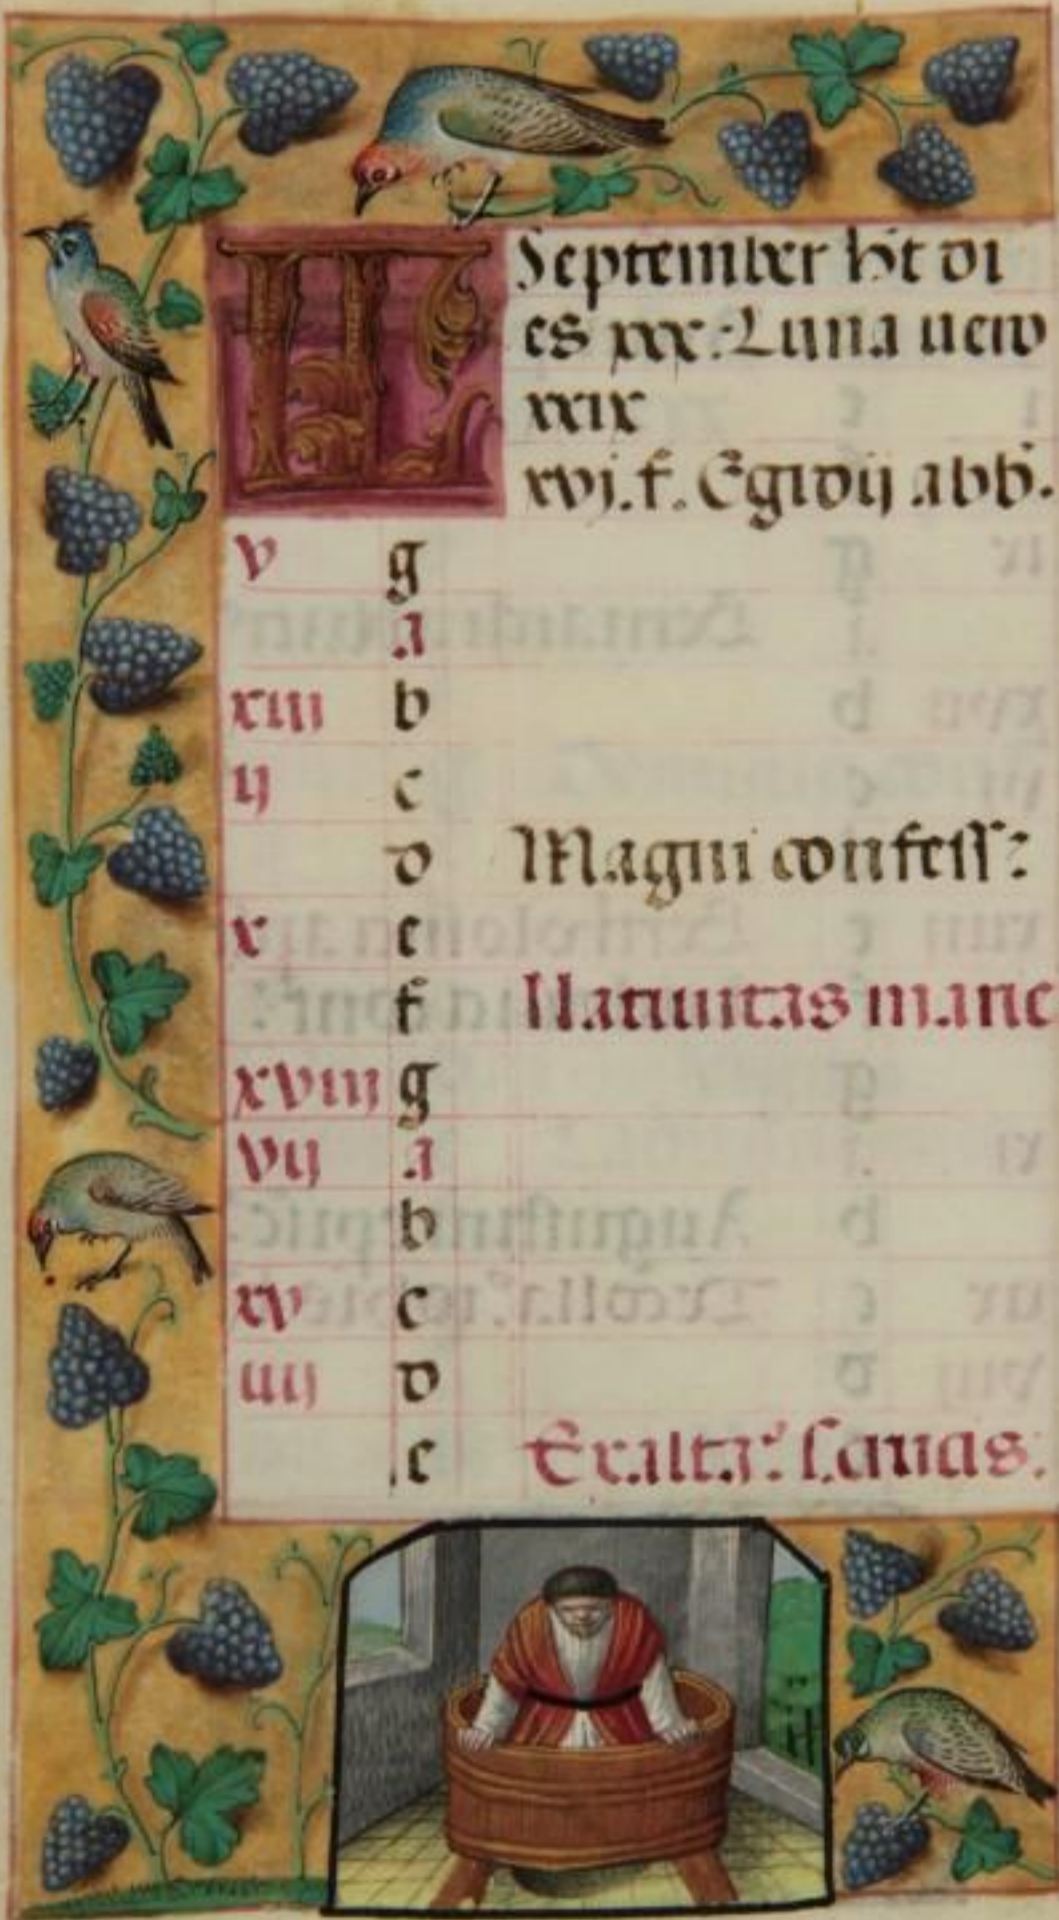 KL September h̄t di
es xxx: Luna vero
xxix
xvj. f. Egidij abb.
v g
a
xiii b
ij c
d Magni confess:
x e
f Natiuitas marie
xviii g
vij a
b
xv c
iiij d
e Exalta. s. crucis.